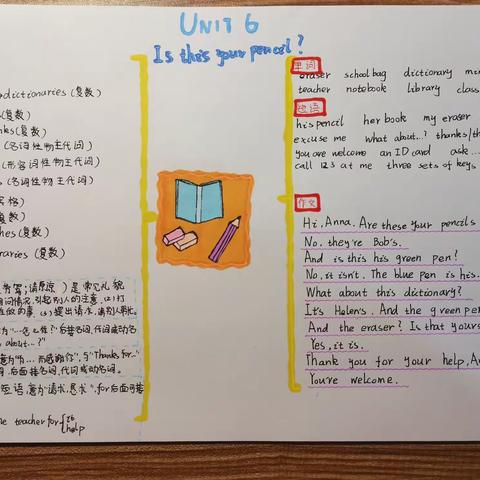 UNIT 6
Is this your pencil?
dictionaries (复数)
(复数)
nks(复数)
(名词性物主代词)
(形容词性物主代词)
s (名词性物主代词)
宾格)
复数)
ches(复数)
raries (复数)
是 带 礼貌
引起别人的注意,(2)打
(3)提出请求,
为"…怎么样?"后接名词,代词或动名
about…?"
意为"为……而感谢你",与"Thanks for…"
后面接名词、代词或动名词。
短语,意为"请求,恳求",for后面可接
teacher for it
help
单词
eraser schoolbag dictionary min
teacher notebook library class
短语
his pencil her book my eraser
excuse me what about…? thanks/th
you are welcome an ID card ask……
call 123 at me three sets of keys
作文
Hi, Anna. Are these your pencils
No. they're Bob's.
And is this his green pen?
No, it isn't. The blue pen is his.
What about this dictionary?
It's Helen's. And the green pen
And the eraser? Is that yours
Yes, it is.
Thank you for your help, A
You're welcome.